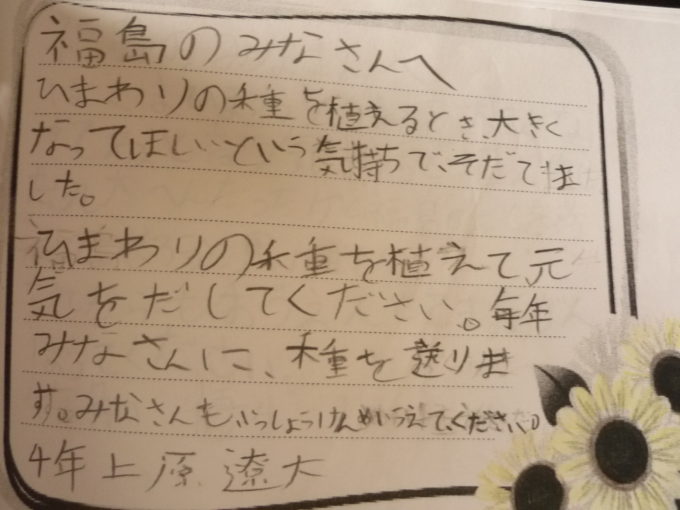 福島のみなさんへ
ひまわりの種を植えるとき、大きく
なってほしいという気持ちで、そだてま
した。
ひまわりの種を植えて元
気をだしてください。毎年
みなさんに、種を送りま
す。みなさんも、いっしょうけんめいうえてください。
4年上原遼大